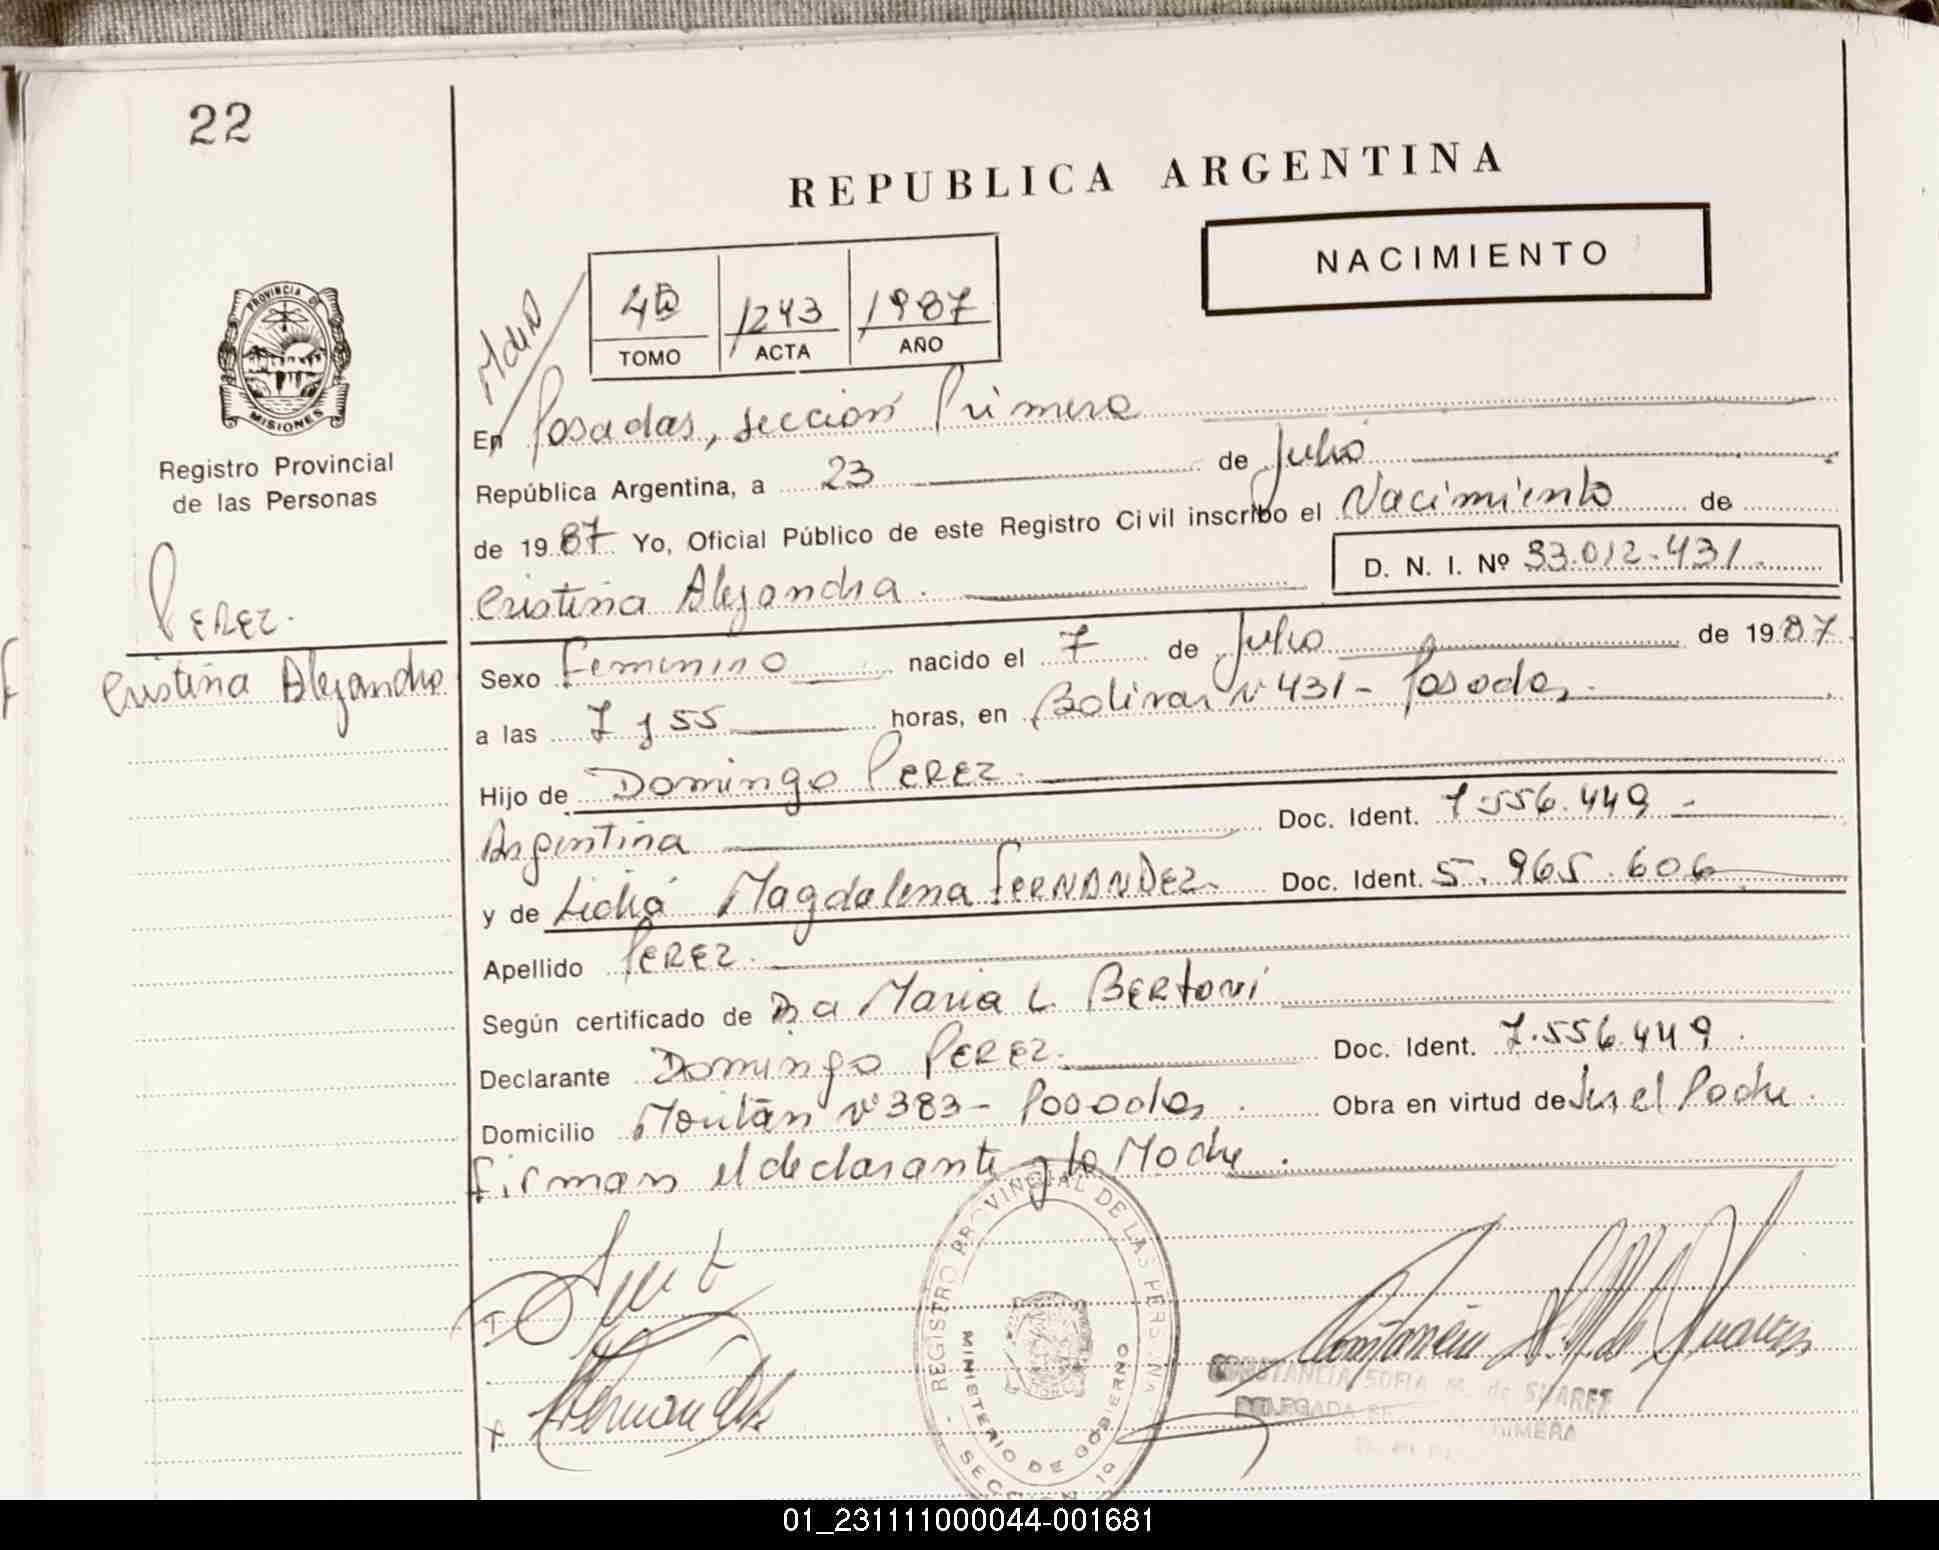 22
REPUBLICA ARGENTINA
NACIMIENTO
4B 1243 1987
TOMO ACTA AÑO
PROVINCIA DE
MISIONES
Registro Provincial
de las Personas
PEREZ.
Cristina Alejandra
En Posadas, sección Primera
República Argentina, a 23 de Julio
de 1987 Yo, Oficial Público de este Registro Civil inscribo el Nacimiento de
Cristina Alejandra. D. N. I. Nº 33.012.431.
Sexo Femenino nacido el 7 de Julio de 1987
a las 7 y 55 horas, en Bolivar Nº 431 - Posadas.
Hijo de Domingo PEREZ.
Argentina Doc. Ident. 7.556.449 -
y de Lidia Magdalena FERNANDEZ. Doc. Ident. 5.965.606
Apellido PEREZ.
Según certificado de Dra Maria L. BERtoni
Declarante Domingo PEREZ. Doc. Ident. 7.556.449.
Domicilio Nº 383 - Posadas. Obra en virtud de ser el Padre.
Firman el declarante y la Madre.
REGISTRO PROVINCIAL DE LAS PERSONAS
MINISTERIO DE GOBIERNO
Fernandez
CONSTANCIA SOFIA M. de SUAREZ
DELEGADA
PRIMERA
01_231111000044-001681